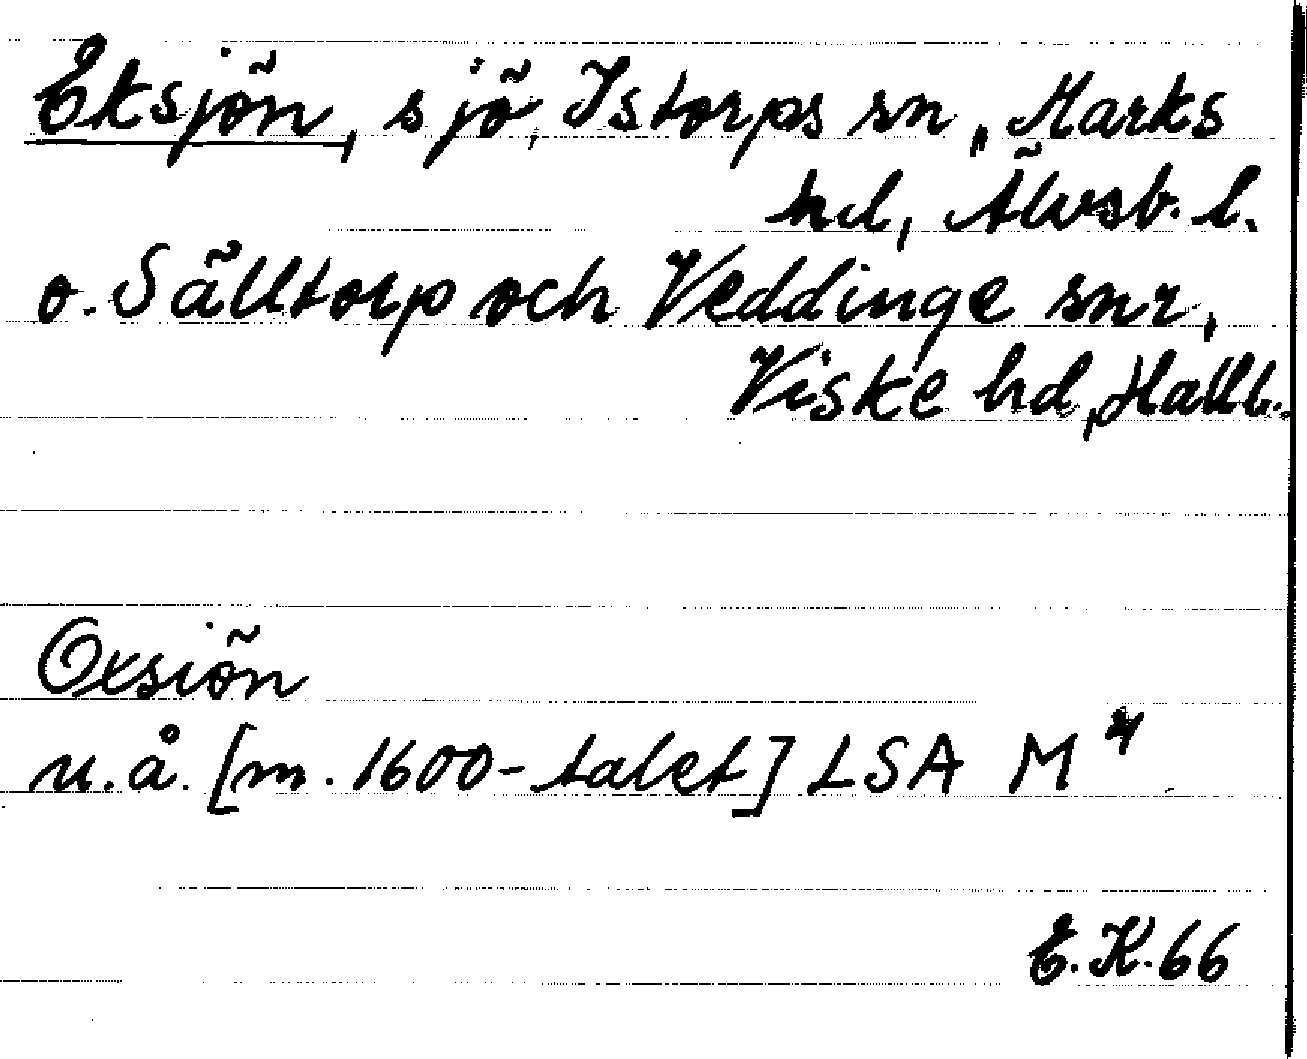 Eksjön, sjö, Istorps sn, Marks
hd, Älvsb. l.
o. Sälltorp och Veddinge snr,
Viske hd, Hall.
Oxsiön
u.å. [m. 1600-talet] LSA M 4
E.K. 66